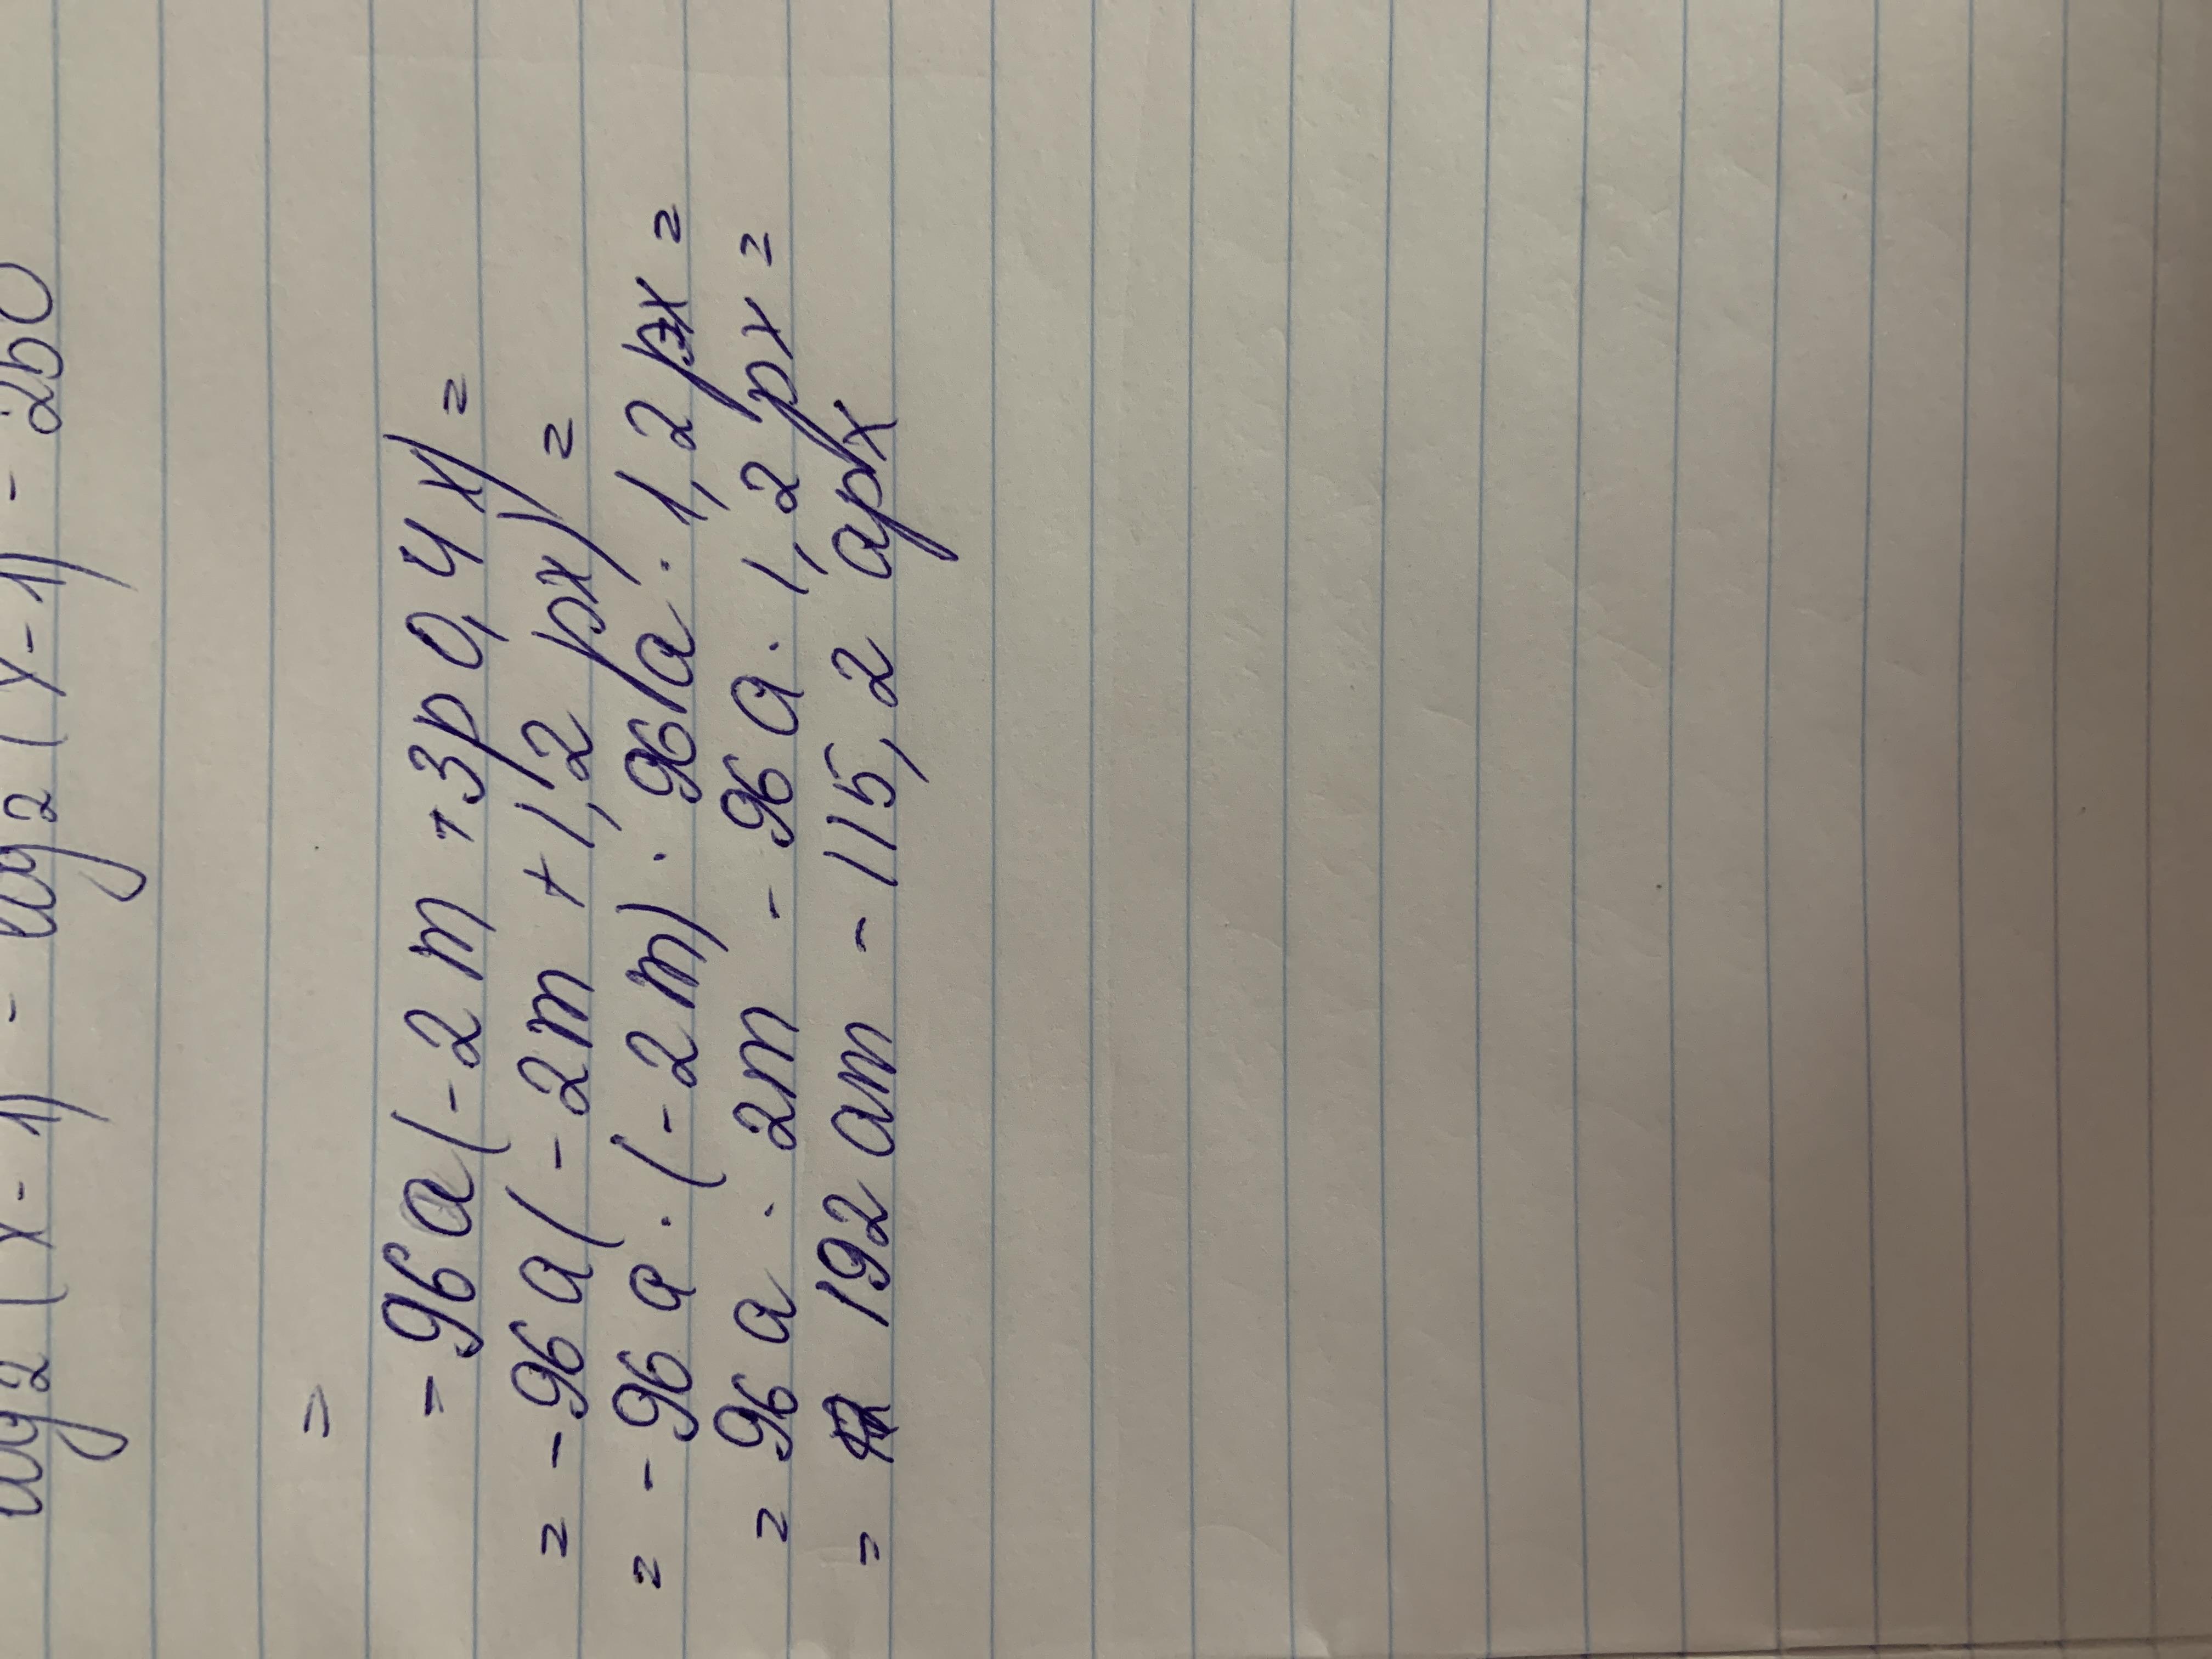 log2(x-1) - log2(y-1) - 2b0
=
- 96a(-2m + 3p0,4x) =
= -96a(-2m + 1,2px) =
= -96a·(-2m)·96a·1,2px =
= 96a·2m - 96a·1,2px =
= 192am - 115,2apx